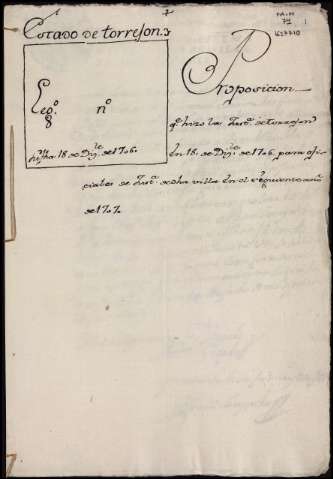 Estado de torrejon
Proposicion
Lego. 8 nº
fha. 18 de Dizre. de 1706.
q hizo la Justa. de torrejon
En 18. de Dizre. de 1706. para ofi-
ciales de Justa. de dha villa En el siguiente año
de 1707.